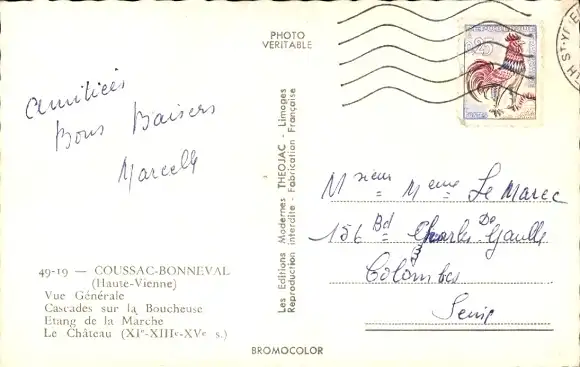 PHOTO
VERITABLE
0,25
TH ST-YRIEI
amitiés
Bons Baisers
Marcelle
Les Editions Modernes THEOJAC - Limoges
Reproduction interdite - Fabrication Française
Msieur Meme Le Marec
156 Bd Charles De Gaulle
Colombes
Seine
49-19 — COUSSAC-BONNEVAL
(Haute-Vienne)
Vue Générale
Cascades sur la Boucheuse
Etang de la Marche
Le Château (XIe-XIIIe-XVe s.)
BROMOCOLOR